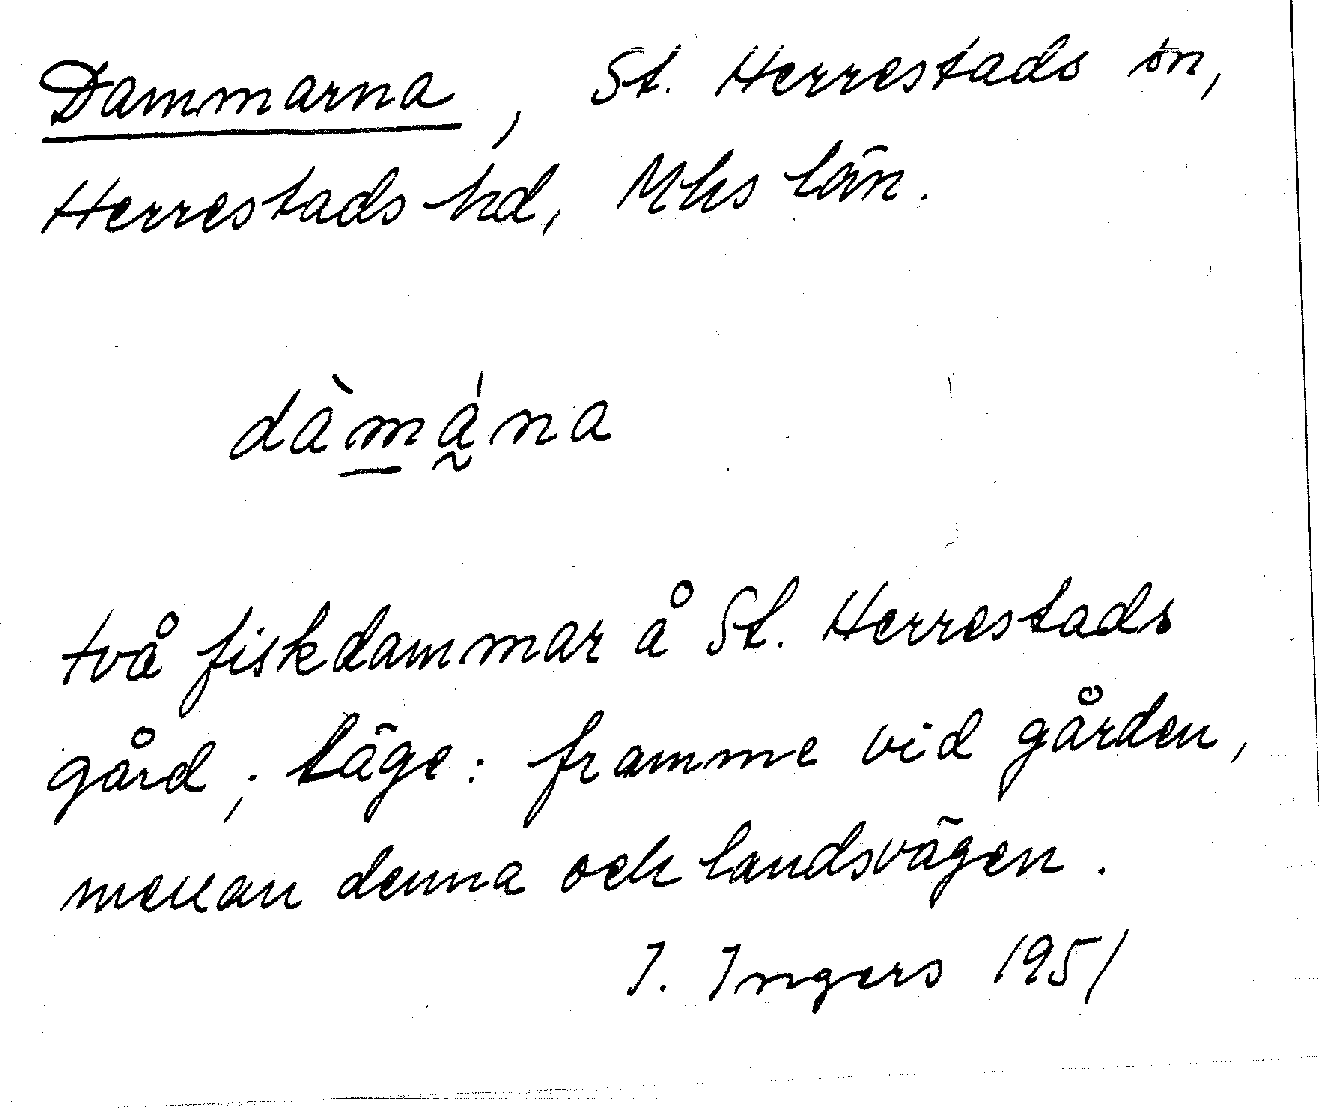 Dammarna, St. Herrestads sn,
Herrestads hd, Mhs län.
dàm̲á̰na
två fiskdammar å St. Herrestads
gård; läge: framme vid gården,
mellan denna och landsvägen.
I. Ingers 1951